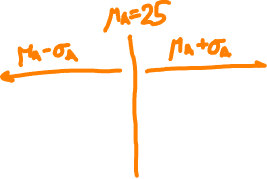 μA=25
μA-σA
μA+σA